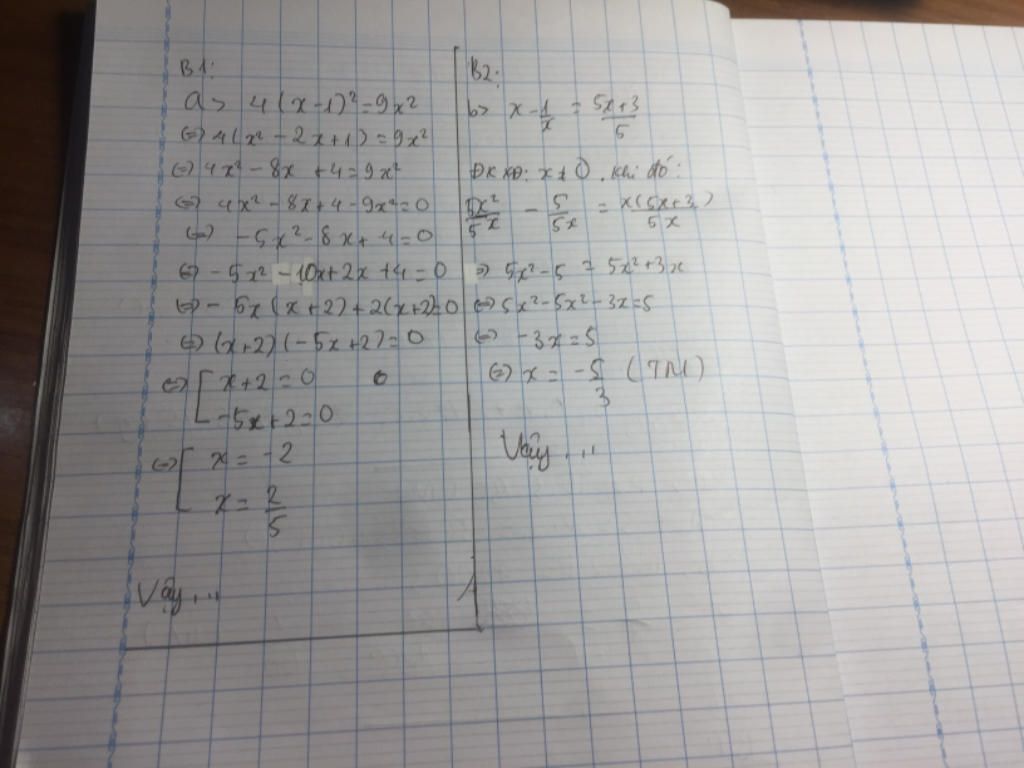 B1:
a> 4(x-1)² = 9x²
⇔ 4(x² - 2x + 1) = 9x²
⇔ 4x² - 8x + 4 = 9x²
⇔ 4x² - 8x + 4 - 9x² = 0
⇔ -5x² - 8x + 4 = 0
⇔ -5x² - 10x + 2x + 4 = 0
⇔ -5x(x+2) + 2(x+2) = 0
⇔ (x+2)(-5x+2) = 0
⇔ [ x+2 = 0
-5x+2 = 0
⇔ [ x = -2
x = 2/5
Vậy...
B2:
b> x - 1/x = (5x+3)/5
ĐKXĐ: x ≠ 0. khi đó:
5x²/5x - 5/5x = x(5x+3)/5x
⇒ 5x² - 5 = 5x² + 3x
⇔ 5x² - 5x² - 3x = 5
⇔ -3x = 5
⇔ x = -5/3 (TM)
Vậy...